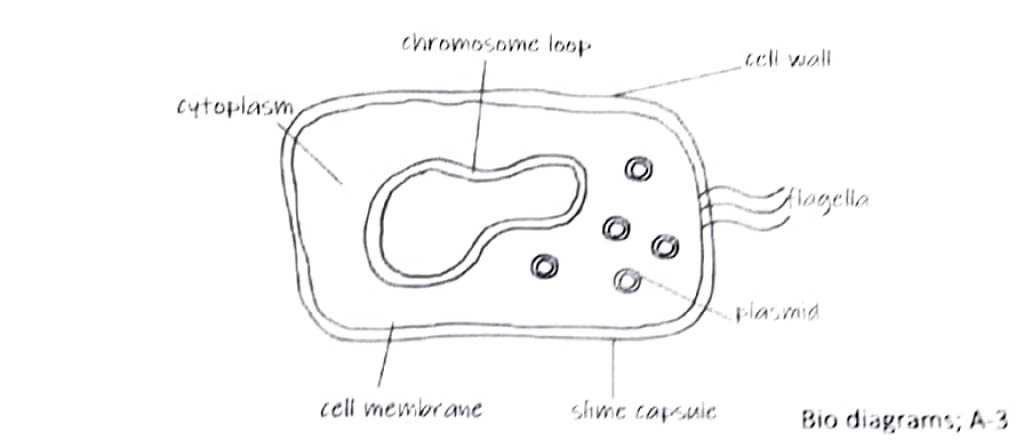 chromosome loop
cell wall
cytoplasm
flagella
plasmid
cell membrane
slime capsule
Bio diagrams; A-3